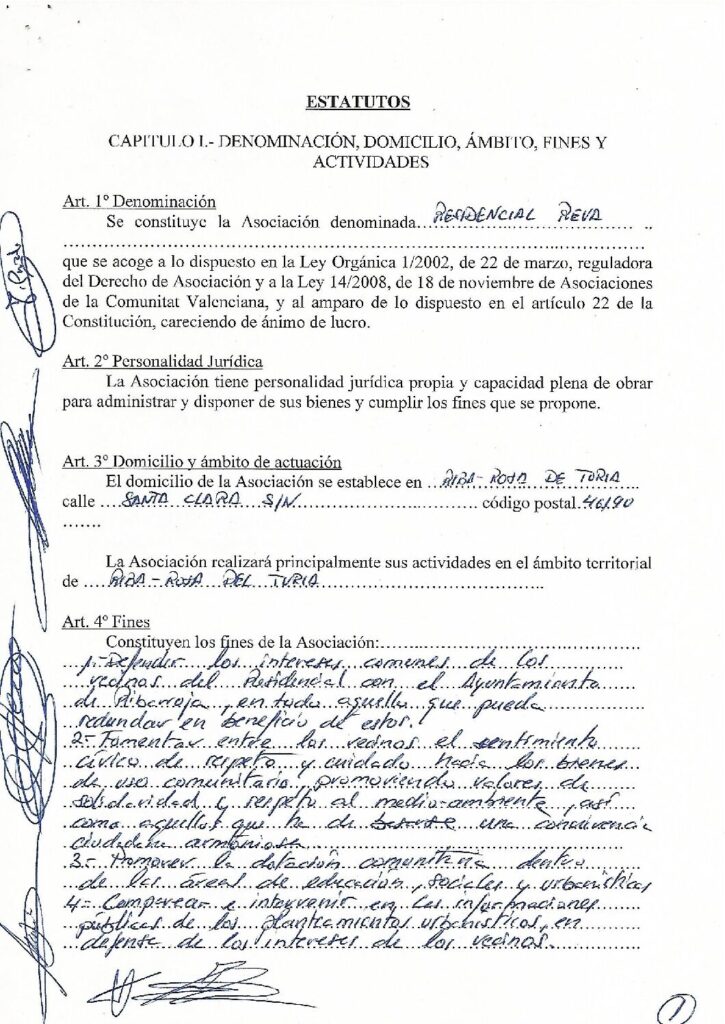 ESTATUTOS
CAPITULO I.- DENOMINACIÓN, DOMICILIO, ÁMBITO, FINES Y
ACTIVIDADES
Art. 1º Denominación
Se constituye la Asociación denominada....RESIDENCIAL REVA.... ..
que se acoge a lo dispuesto en la Ley Orgánica 1/2002, de 22 de marzo, reguladora
del Derecho de Asociación y a la Ley 14/2008, de 18 de noviembre de Asociaciones
de la Comunitat Valenciana, y al amparo de lo dispuesto en el artículo 22 de la
Constitución, careciendo de ánimo de lucro.
Art. 2º Personalidad Jurídica
La Asociación tiene personalidad jurídica propia y capacidad plena de obrar
para administrar y disponer de sus bienes y cumplir los fines que se propone.
Art. 3º Domicilio y ámbito de actuación
El domicilio de la Asociación se establece en ..RIBA-ROJA DE TURIA
calle ...SANTA CLARA S/N............ código postal.46190
.......
La Asociación realizará principalmente sus actividades en el ámbito territorial
de ....RIBA-ROJA DEL TURIA............
Art. 4º Fines
Constituyen los fines de la Asociación:............
1.- Defender los intereses comunes de los
vecinos del Residencial con el Ayuntamiento
de Ribarroja, en todo aquello que pueda
redundar en beneficio de estos.
2.- Fomentar entre los vecinos el sentimiento
cívico de respeto y cuidado hacia los bienes
de uso comunitario, promoviendo valores de
solidaridad y respeto al medio-ambiente, así
como aquellos que ha de una convivencia
ciudadana armoniosa.
3.- Promover la dotación comunitaria dentro
de las áreas de educación, sociales y urbanísticas
4.- Comparecer e intervenir en las informaciones
públicas de los planteamientos urbanísticos, en
defensa de los intereses de los vecinos.
1